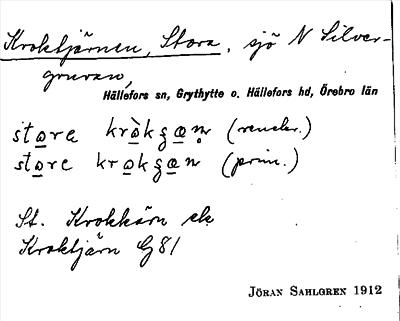 Kroktjärnen, Stora, sjö N Silver-
gruvan,
Hällefors sn, Grythytte o. Hällefors hd, Örebro län
stora kròkʒæn̥ (sekdr.)
stora krokʒæn (prim.)
St. Krokkärn ek
Kroktjärn G81
JÖRAN SAHLGREN 1912